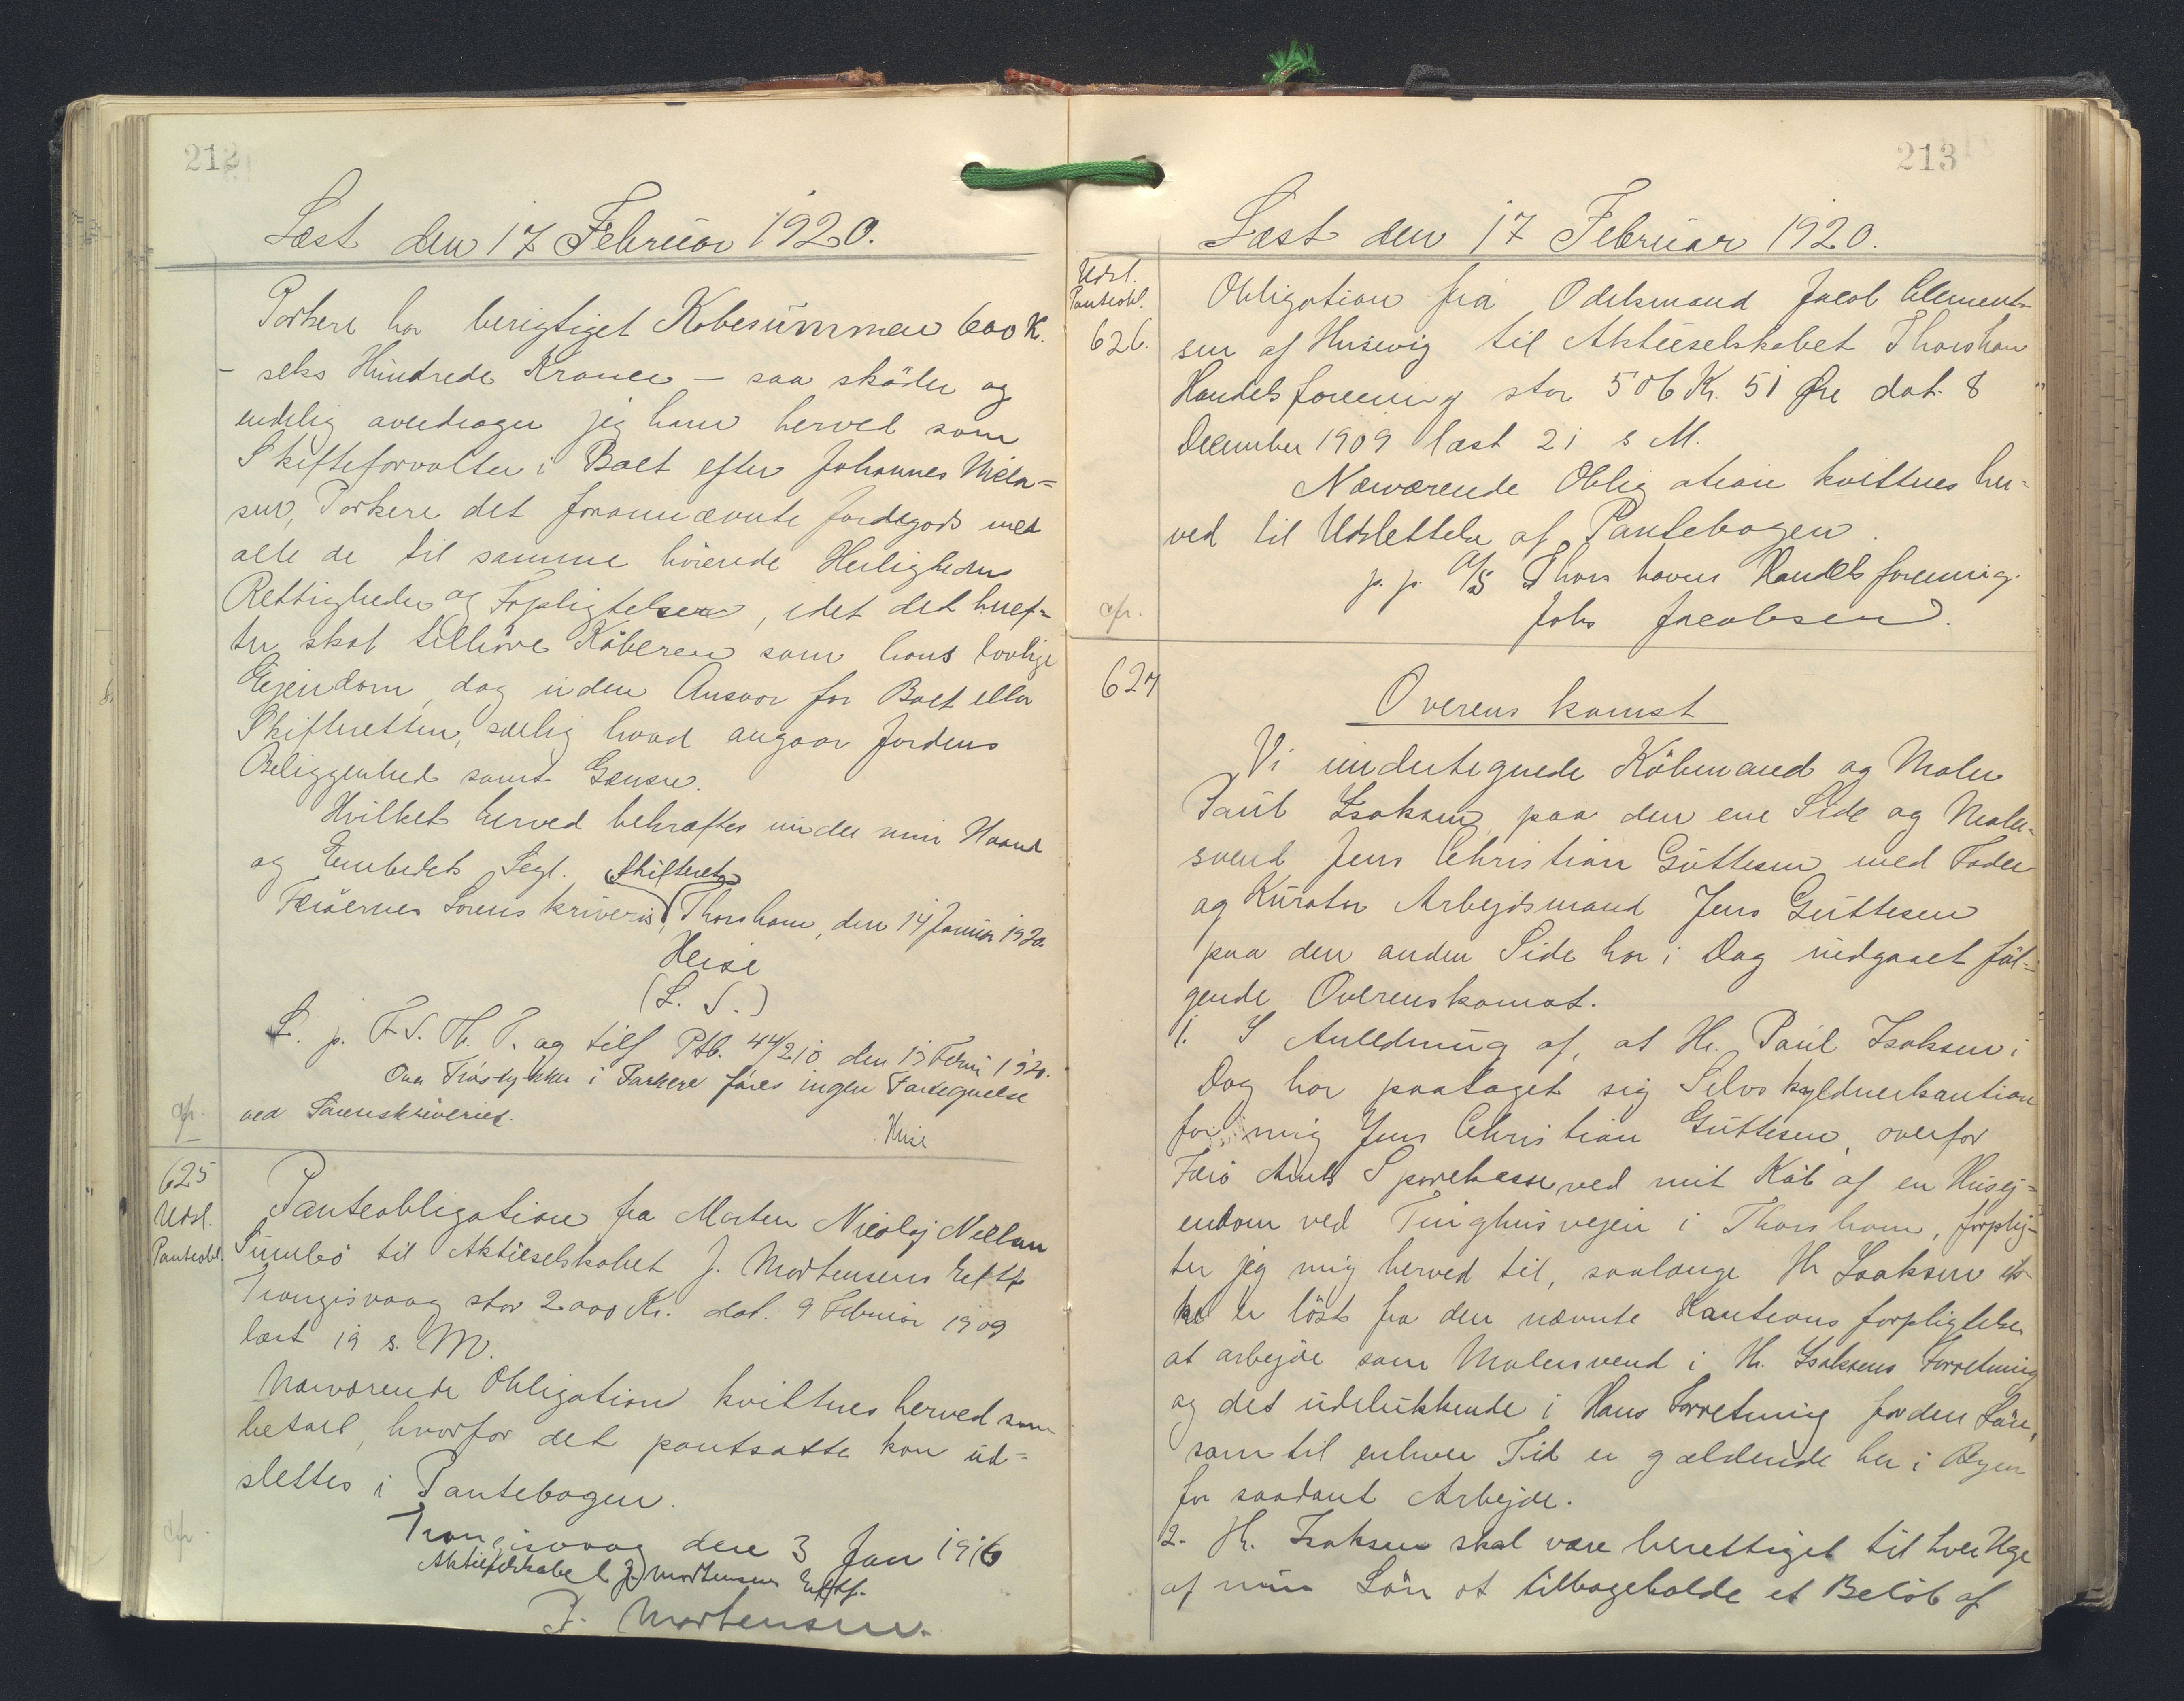 212
Læst den 17 Februar 1920.
Porkere har berigtiget Købesummen 600 K.
- seks Hundrede Kroner - saa skøder og
endelig overdrager jeg ham herved som
Skifteforvalter i Boet efter Johannes Niela=
sen, Porkere det foranævnte Jordegods med
alle de til samme hörende Herligheder
Rettigheder og Forpligtelser, idet det heref=
ter skal tilhøre Køberen som hans lovlige
Ejendom, dog uden Ansvar for Boet eller
Skifteretten, særlig hvad angaar Jordens
Beliggenhed samt Grænser.
Hvilket herved bekræftes under min Haand
og Embedets Segl. Skifteret
Færøernes Sorenskriveri, Thorshavn, den 14 Januar 1920
Heise
(L. S.)
L. p. F. S. Th. P. og tilf Ptb. 44/210 den 13 Febru 1920.
Over Træstykker i Porkere føres ingen Fortegnelse
ved Sorenskriveriet.
Heise
cfr.
625
Udsl.
Panteobl.
Panteobligation fra Morten Nicolaj Nielsen
Sumbø til Aktieselskabet J. Mortensens Eftf
Trangisvaag stor 2000 Kr. dat. 9 Februar 1909
læst 19 s. M.
Nærværende Obligation kvitteres herved som
betalt, hvorfor det pantsatte kan ud=
slettes i Pantebogen.
Trangisvaag den 3 Jan 1916
Aktieselskabet J. Mortensens Eftf.
P. Mortensen.
cfr.
213
Læst den 17 Februar 1920.
Udsl.
Panteobl.
626.
Obligation fra Odelsmand Jacob Clement=
sen af Husevig til Aktieselskabet Thorshavn
Handelsforening stor 506 Kr. 51 Øre dat. 8
December 1909 læst 21 s M.
Nærværende Obligation kvitteres her=
ved til Udslettelse af Pantebogen.
p. p. A/S Thorshavns Handelsforening.
Johs Jacobsen.
cfr.
627
Overenskomst
Vi undertegnede Købmand og Maler
Paul Isaksen paa den ene Side og Maler=
svend Jens Christian Guttesen med Fader
og Kurator Arbejdsmand Jens Guttesen
paa den anden Side har i Dag indgaaet føl=
gende Overenskomst.
1. I Anledning af, at Hr. Paul Isaksen i
Dag har paataget sig Selvskyldnerkaution
for mig Jens Christian Guttesen, overfor
Færø Amts Sparekasse ved mit Køb af en Husej=
endom ved Tinghusvejen i Thorshavn, forplig=
ter jeg mig herved til, saalænge Hr Isaksen ik=
ke er løst fra den nævnte Kautionsforpligtelse
at arbejde som Malersvend i Hr. Isaksens Forretning
og det udelukkende i Hans Forretning for den Løn,
som til enhver Tid er gældende her i Byen
for saadant Arbejde.
2. Hr. Isaksen skal være berettiget til hver Uge
af min Løn at tilbageholde et Beløb af